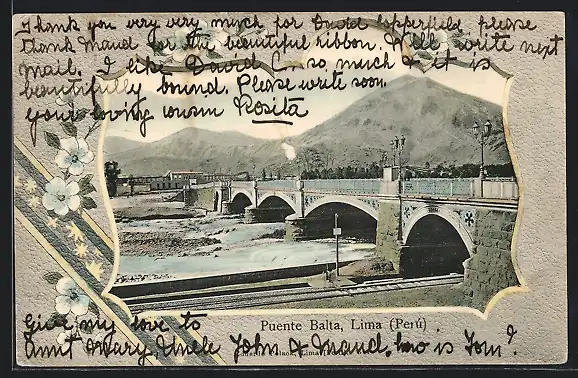 Thank you very very much for David Copperfield please
thank Maud for the beautiful ribbon. Will write next
mail. I like David C. so much & it is
beautifully bound. Please write soon.
your loving cousin Rosita
Puente Balta, Lima (Perú)
Give my love to
Aunt Mary, Uncle John & Maud, how is Tom?